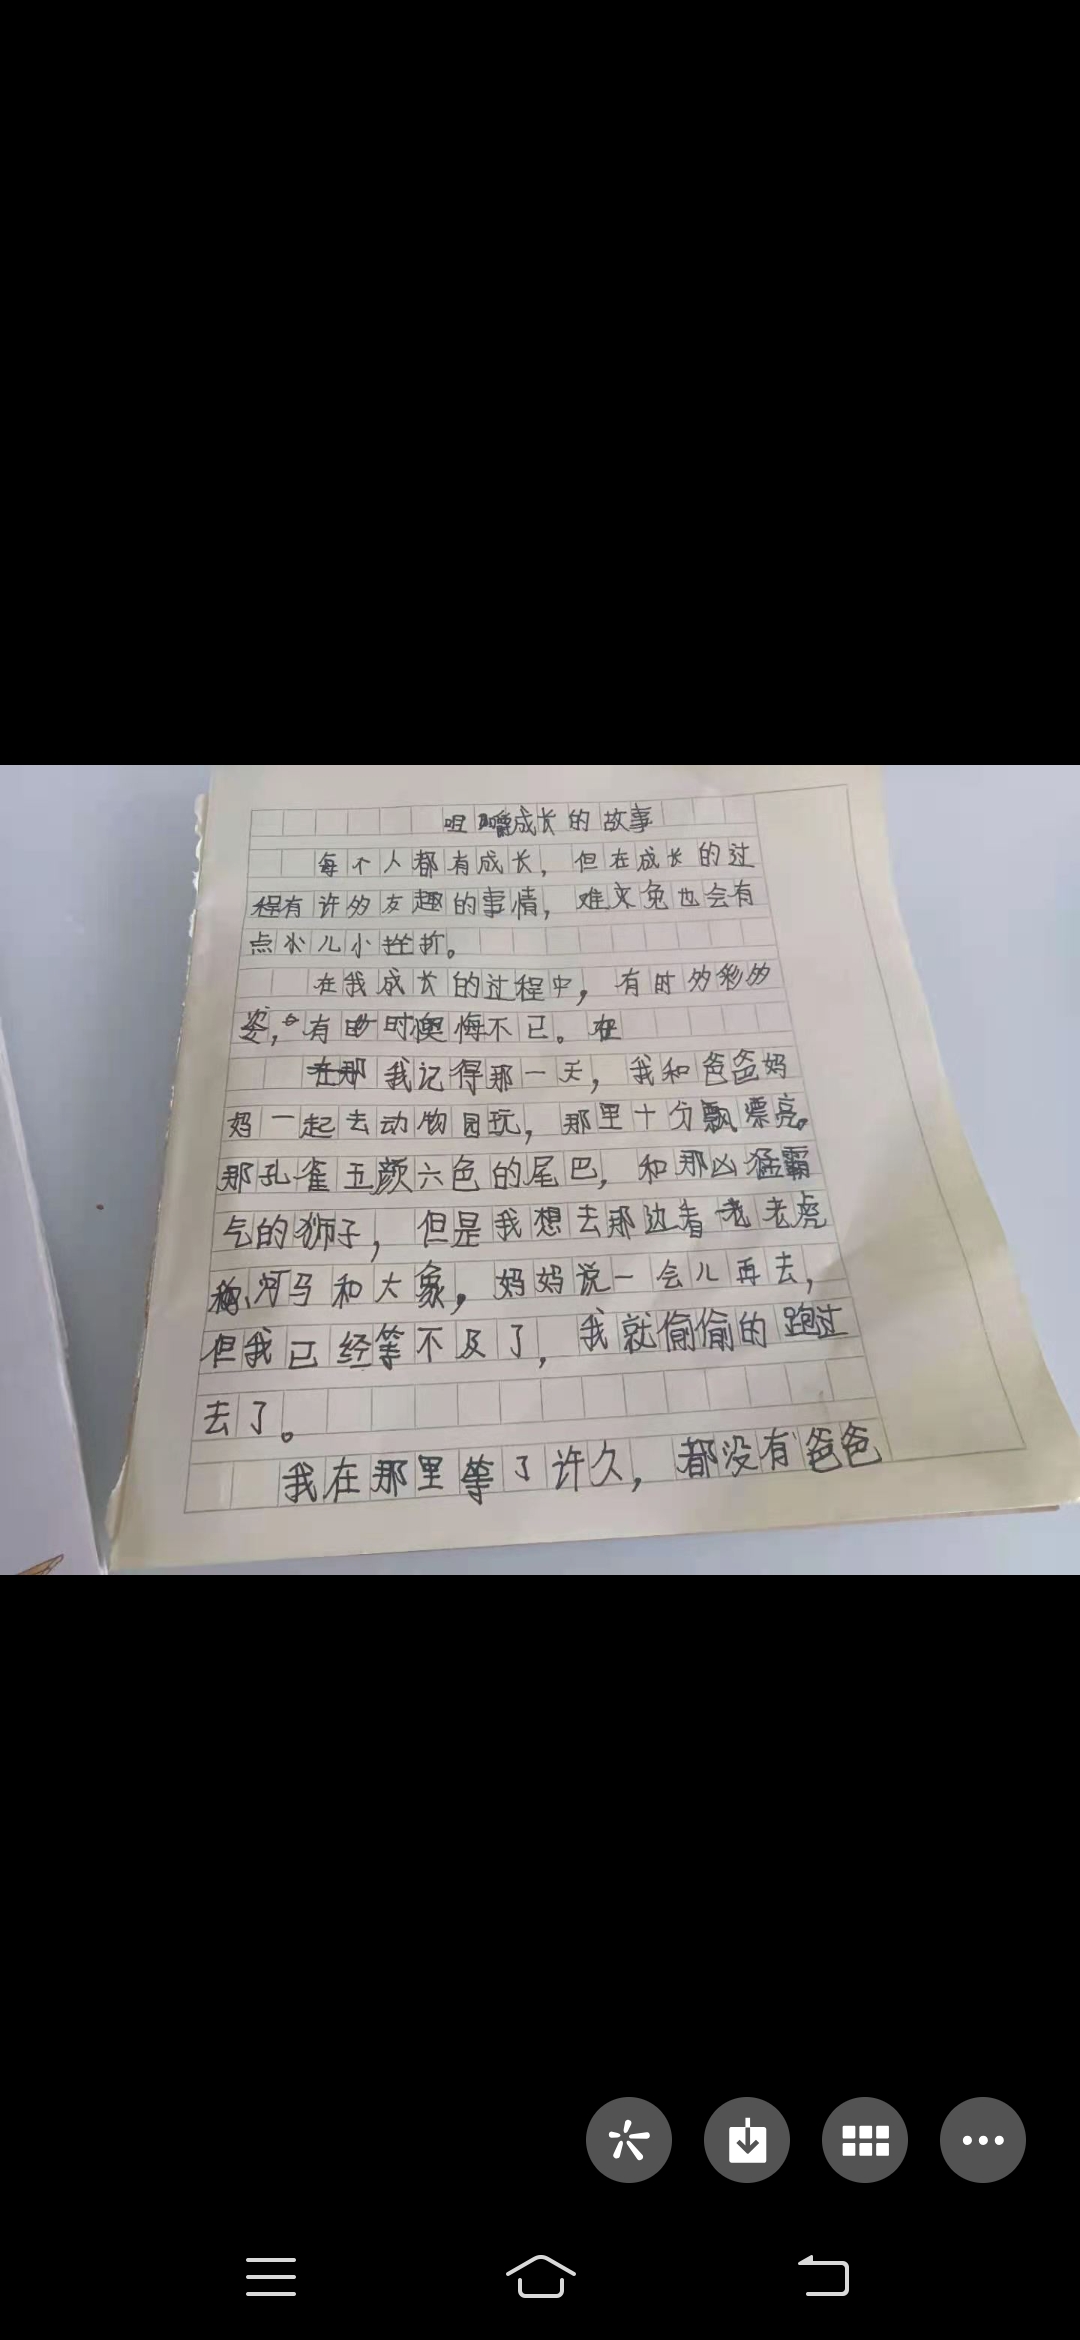 咀嚼成长的故事
每个人都有成长，但在成长的过
程有许多友趣的事情，难免也会有
点小儿小挫折。
在我成长的过程中，有时多彩多
姿，有时懊悔不已。
我记得那一天，我和爸爸妈
妈一起去动物园玩，那里十分漂亮。
那孔雀五颜六色的尾巴，和那凶猛霸
气的狮子，但是我想去那边看老虎
、河马和大象，妈妈说一会儿再去，
但我已经等不及了，我就偷偷的跑过
去了。
我在那里等了许久，都没有爸爸